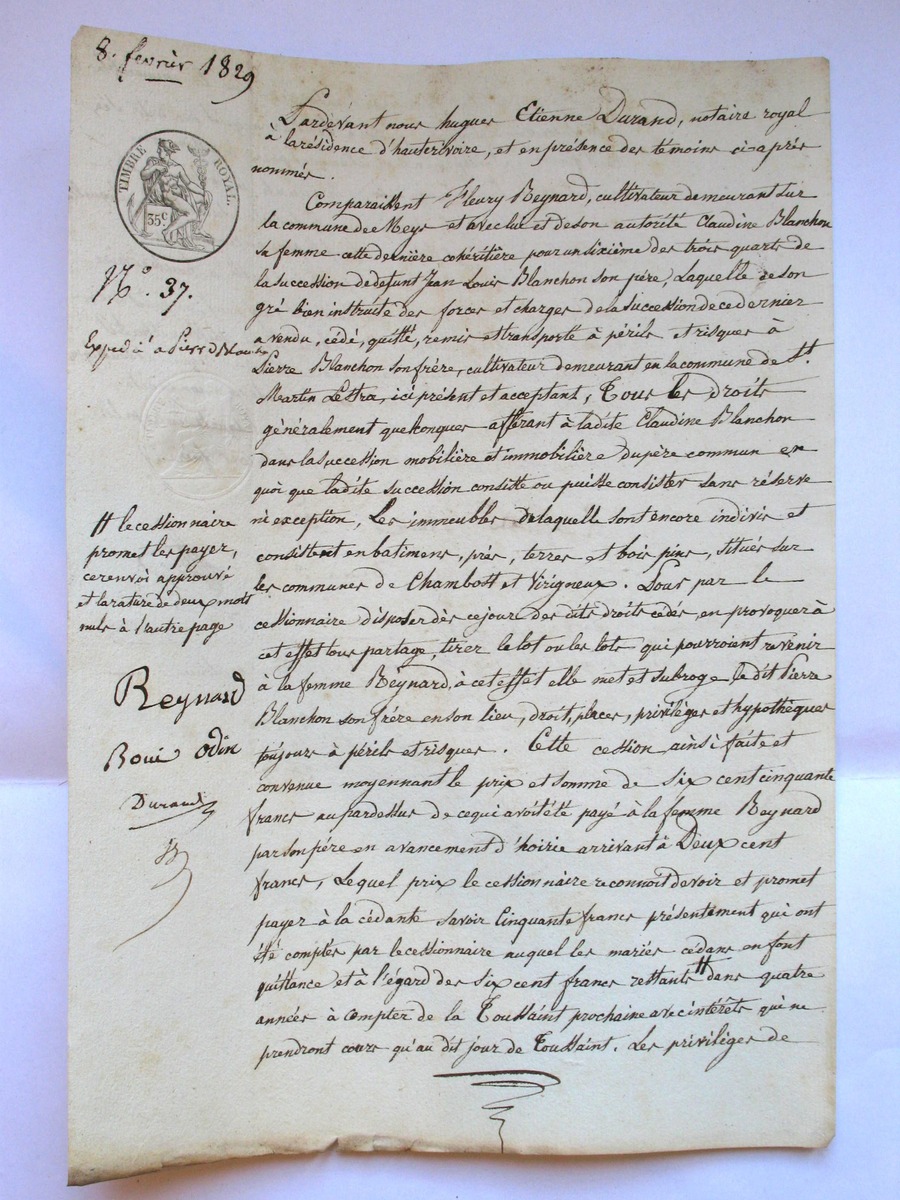 8. fevrièr 1829
TIMBRE ROYAL.
35c
N°. 37.
Expedié a Pierre Blanchon
Pardevant nous hugues Etienne Durand, notaire royal
à la résidence d'hauterivoire, et en présence des témoins ci-après
nommés.
Comparaissent Fleury Reynard, cultivateur demeurant sur
la commune de Meys et avec lui et de son autorité Claudine Blanchon
sa femme cette dernière cohéritière pour un sixième des trois quarts de
la succession de defunt Jean Louis Blanchon son père, Laquelle de son
gré bien instruite des forces et charges de la succession de ce dernier
a vendu, cédé, quitté, remis et transporté à périls et risques à
Pierre Blanchon son frère, cultivateur demeurant en la commune de St.
Martin Lestra, ici présent et acceptant, Tous les droits
généralement quelconques afférant à ladite Claudine Blanchon
dans la succession mobilière et immobilière du père commun en
quoi que ladite succession consiste ou puisse consister sans réserve
ni exception, Les immeubles de laquelle sont encore indivis et
consistent en batimens, près, terres et bois pins, situés sur
les communes de Chambost et Virigneux. Pous par le
cessionnaire disposer dès ce jour des dits droits cédés, en provoquer à
cet effet tous partage, tirer le lot ou les lots qui pourroient revenir
à la femme Reynard, à cet effet elle met et subroge le dit Pierre
Blanchon son frère en son lieu, droit, places, privilèges et hypothèques
toujours à périls et risques. Cette cession ainsi faite et
convenue moyennant le prix et somme de six cent cinquante
francs au par dessus de ce qui avoit été payé à la femme Reynard
par son père en avancement d'hoirie arrivant à Deux cent
francs, Lequel prix le cessionnaire reconnoit devoir et promet
payer à la cédante savoir Cinquante francs présentement qui ont
été comptés par le cessionnaire auquel les mariés cédans en font
quittance et à l'égard des six cent francs restants # dans quatre
années à compter de la Toussaint prochaine avec intérêts qui ne
prendront cours qu'au dit jour de Toussaint. Les privilèges de
# le cessionnaire
promet les payer,
ce renvoi approuvé
et la rature de deux mots
nuls à l'autre page
Reynard
Roui odin
Durand